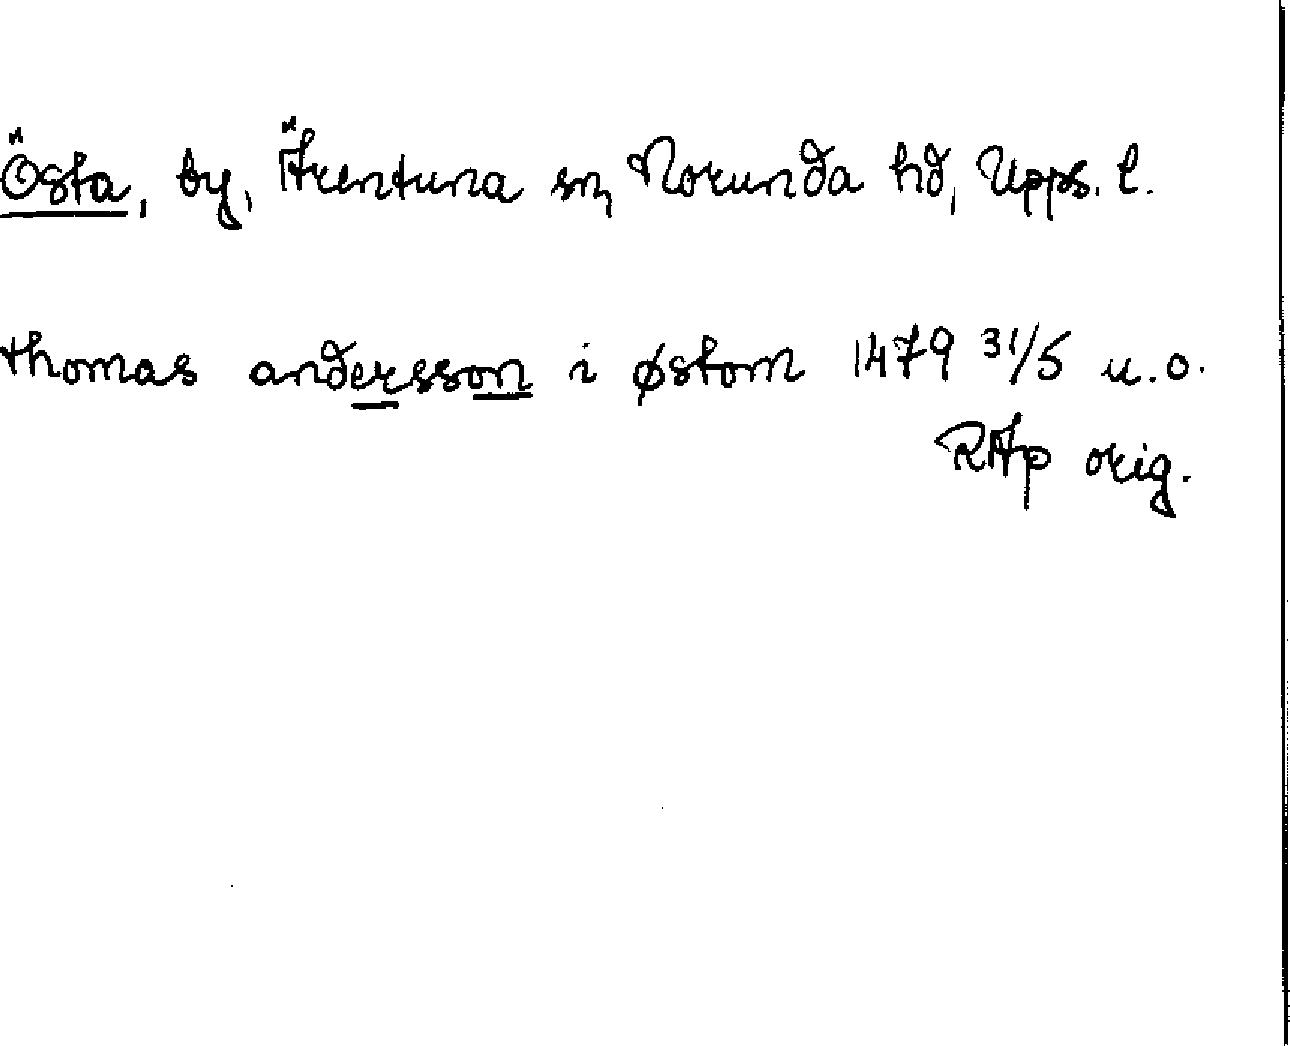 Östa, by, Ärentuna sn, Norunda hd, Upps. l.
thomas andersson i østom 1479 31/5 u.o.
RAp orig.